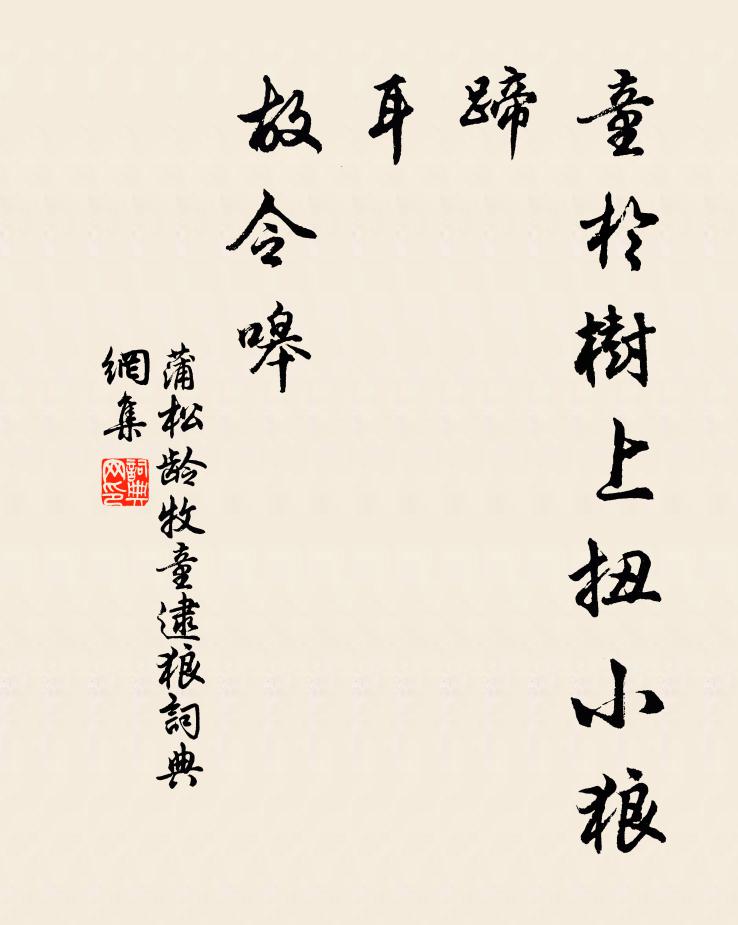 童於樹上扭小狼
蹄
耳
故令嗥
蒲松龄牧童逮狼詞典
網集
詞典
网印